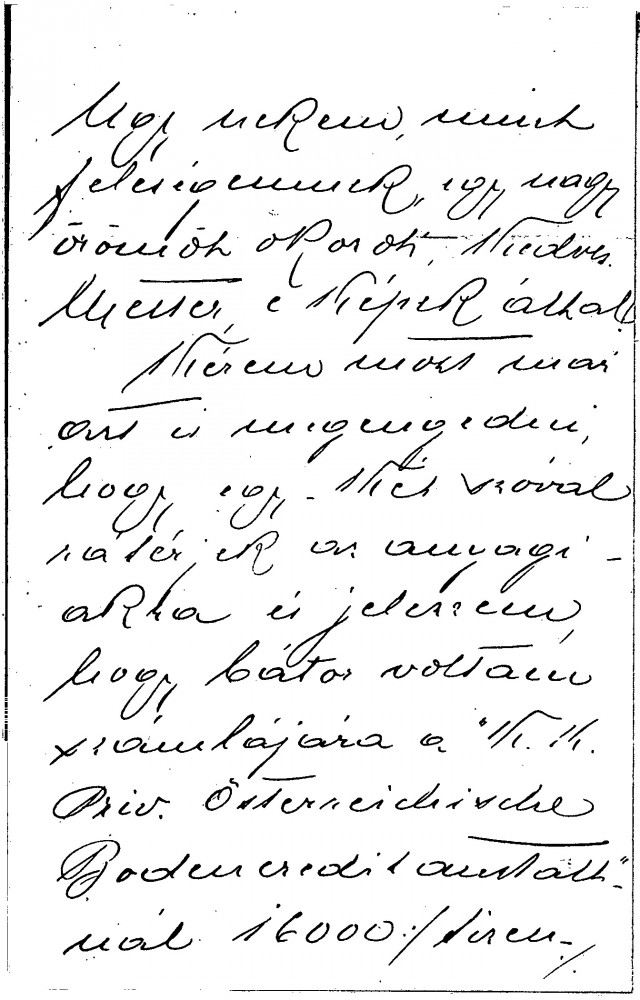 Ugy nekem, mint
feleségemnek, egy nagy
örömöt okozott, Kedves
Mester, e képek által.
Kérem most már
azt is megengedni,
hogy egy-két szóval
rátérjek az anyagi-
akra és jelezzem,
hogy bátor voltam
számlájára a "K. K.
Priv. Österreichische
Bodencreditanstalt"-
nál 16000 /tizen-/